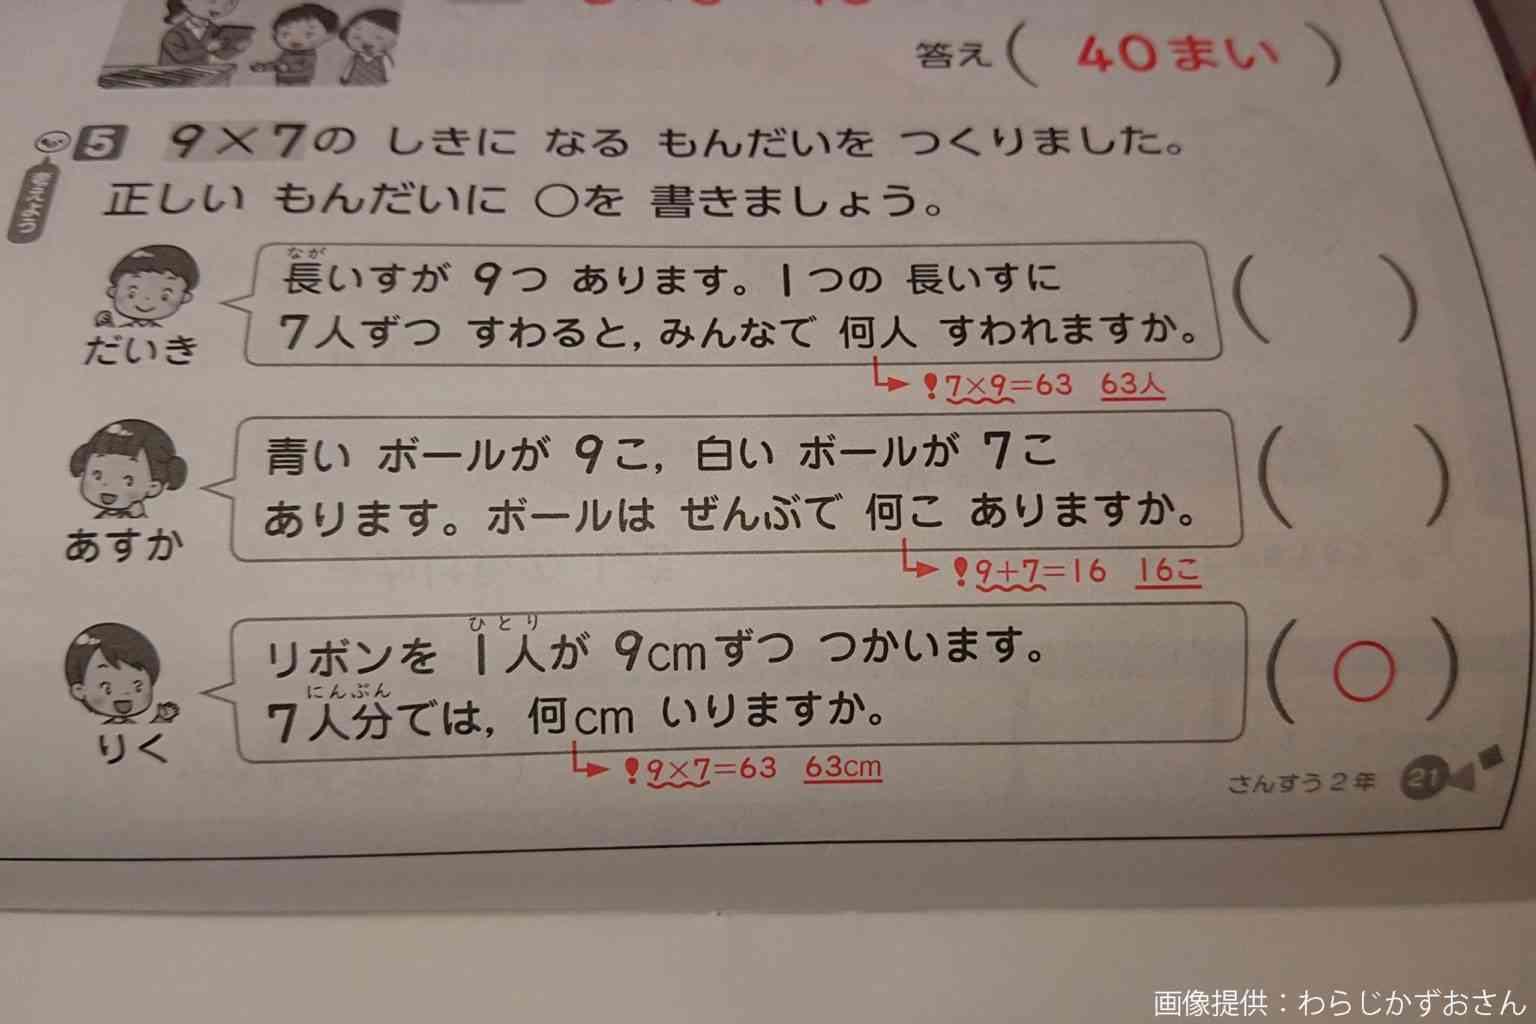 答え( 40まい )
5 9×7の しきに なる もんだいを つくりました。
考えよう
正しい もんだいに ○を 書きましょう。
なが
長いすが 9つ あります。1つの 長いすに
7人ずつ すわると, みんなで 何人 すわれますか。
( )
だいき
!7×9=63 63人
青い ボールが 9こ, 白い ボールが 7こ
あります。ボールは ぜんぶで 何こ ありますか。
( )
あすか
!9+7=16 16こ
ひとり
リボンを 1人が 9cmずつ つかいます。
にんぶん
7人分では, 何cm いりますか。
( ○ )
りく
!9×7=63 63cm
さんすう2年 21
画像提供：わらじかずおさん